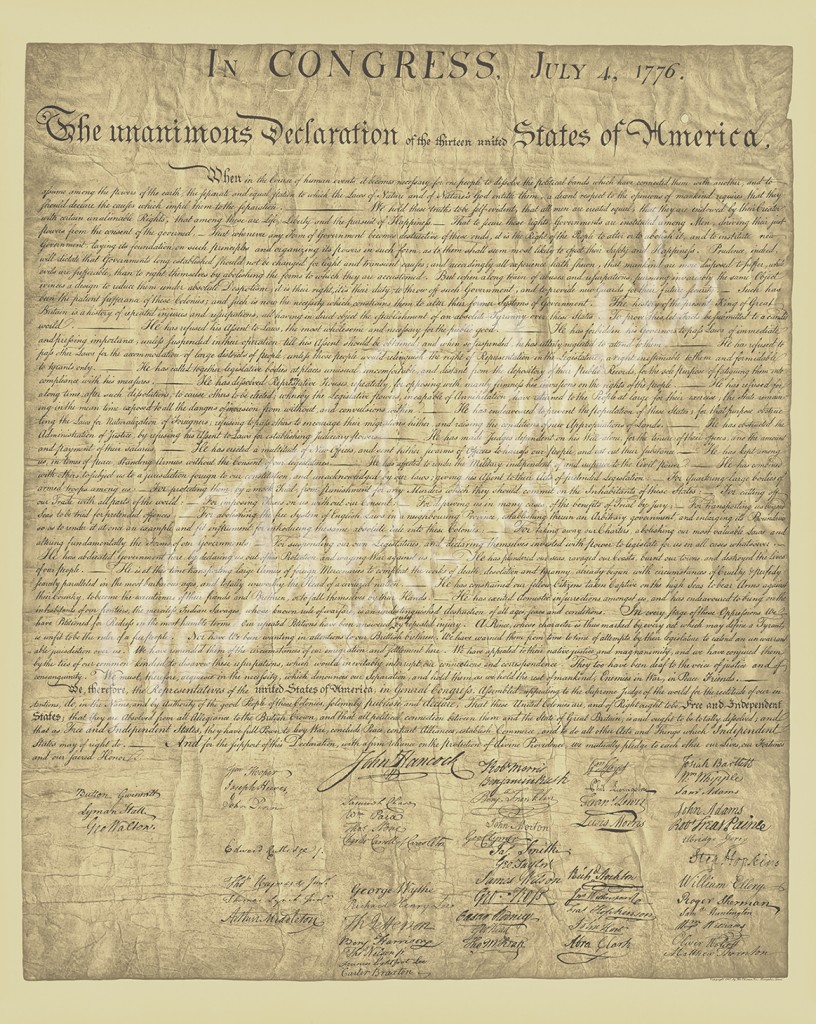 IN CONGRESS, JULY 4, 1776.
The unanimous Declaration of the thirteen united States of America.
When in the Course of human events it becomes necessary for one people to dissolve the political bands which have connected them with another, and to
assume among the powers of the earth, the separate and equal station to which the Laws of Nature and of Nature's God entitle them, a decent respect to the opinions of mankind requires that they
should declare the causes which impel them to the separation. — We hold these truths to be self-evident, that all men are created equal, that they are endowed by their Creator
with certain unalienable Rights, that among these are Life, Liberty and the pursuit of Happiness. — That to secure these rights Governments are instituted among Men, deriving their just
powers from the consent of the governed — That whenever any Form of Government becomes destructive of these ends, it is the Right of the People to alter or to abolish it, and to institute new
Government, laying its foundation on such principles and organizing its powers in such form, as to them shall seem most likely to effect their Safety and Happiness. Prudence, indeed,
will dictate that Governments long established should not be changed for light and transient causes; and accordingly all experience hath shewn, that mankind are more disposed to suffer, while
evils are sufferable, than to right themselves by abolishing the forms to which they are accustomed. But when a long train of abuses and usurpations, pursuing invariably the same Object
evinces a design to reduce them under absolute Despotism, it is their right, it is their duty, to throw off such Government, and to provide new Guards for their future security. — Such has
been the patient sufferance of these Colonies; and such is now the necessity which constrains them to alter their former Systems of Government. The history of the present King of Great
Britain is a history of repeated injuries and usurpations, all having in direct object the establishment of an absolute Tyranny over these States. To prove this, let Facts be submitted to a candid
world. — He has refused his Assent to Laws, the most wholesome and necessary for the public good. — He has forbidden his Governors to pass Laws of immediate
and pressing importance, unless suspended in their operation till his Assent should be obtained; and when so suspended, he has utterly neglected to attend to them. — He has refused to
pass other Laws for the accommodation of large districts of people, unless those people would relinquish the right of Representation in the Legislature, a right inestimable to them and formidable
to tyrants only. — He has called together legislative bodies at places unusual, uncomfortable, and distant from the depository of their Public Records, for the sole purpose of fatiguing them into
compliance with his measures. — He has dissolved Representative Houses repeatedly, for opposing with manly firmness his invasions on the rights of the people. — He has refused for a
long time, after such dissolutions, to cause others to be elected; whereby the Legislative powers, incapable of Annihilation, have returned to the People at large for their exercise; the State remain-
ing in the mean time exposed to all the dangers of invasion from without, and convulsions within. — He has endeavoured to prevent the population of these States; for that purpose obstruc-
ting the Laws for Naturalization of Foreigners; refusing to pass others to encourage their migrations hither, and raising the conditions of new Appropriations of Lands. — He has obstructed the
Administration of Justice, by refusing his Assent to Laws for establishing Judiciary powers. — He has made Judges dependent on his Will alone, for the tenure of their offices, and the amount
and payment of their salaries. — He has erected a multitude of New Offices, and sent hither swarms of Officers to harrass our people, and eat out their substance. — He has kept among
us, in times of peace, Standing Armies without the Consent of our legislatures. — He has affected to render the Military independent of and superior to the Civil power. — He has combined
with others to subject us to a jurisdiction foreign to our constitution, and unacknowledged by our laws; giving his Assent to their Acts of pretended Legislation: — For Quartering large bodies of
armed troops among us: — For protecting them, by a mock Trial, from punishment for any Murders which they should commit on the Inhabitants of these States: — For cutting off
our Trade with all parts of the world: — For imposing Taxes on us without our Consent: — For depriving us in many cases, of the benefits of Trial by jury: — For transporting us beyond
Seas to be tried for pretended offences — For abolishing the free System of English Laws in a neighbouring Province, establishing therein an Arbitrary government, and enlarging its Boundaries
so as to render it at once an example and fit instrument for introducing the same absolute rule into these Colonies: — For taking away our Charters, abolishing our most valuable Laws, and
altering fundamentally the Forms of our Governments: — For suspending our own Legislatures, and declaring themselves invested with power to legislate for us in all cases whatsoever. —
He has abdicated Government here, by declaring us out of his Protection and waging War against us. — He has plundered our seas, ravaged our Coasts, burnt our towns, and destroyed the lives
of our people. — He is at this time transporting large Armies of foreign Mercenaries to compleat the works of death, desolation and tyranny, already begun with circumstances of Cruelty & perfidy
scarcely paralleled in the most barbarous ages, and totally unworthy the Head of a civilized nation. — He has constrained our fellow Citizens taken Captive on the high Seas to bear Arms against
their Country, to become the executioners of their friends and Brethren, or to fall themselves by their Hands. — He has excited domestic insurrections amongst us, and has endeavoured to bring on the
inhabitants of our frontiers, the merciless Indian Savages, whose known rule of warfare, is an undistinguished destruction of all ages, sexes and conditions. In every stage of these Oppressions We
have Petitioned for Redress in the most humble terms: Our repeated Petitions have been answered only by repeated injury. A Prince, whose character is thus marked by every act which may define a Tyrant,
is unfit to be the ruler of a free people. Nor have We been wanting in attentions to our Brittish brethren. We have warned them from time to time of attempts by their legislature to extend an unwarrant-
able jurisdiction over us. We have reminded them of the circumstances of our emigration and settlement here. We have appealed to their native justice and magnanimity, and we have conjured them
by the ties of our common kindred to disavow these usurpations, which, would inevitably interrupt our connections and correspondence. They too have been deaf to the voice of justice and of
consanguinity. We must, therefore, acquiesce in the necessity, which denounces our Separation, and hold them, as we hold the rest of mankind, Enemies in War, in Peace Friends. —
We, therefore, the Representatives of the united States of America, in General Congress, Assembled, appealing to the Supreme Judge of the world for the rectitude of our in-
tentions, do, in the Name, and by Authority of the good People of these Colonies, solemnly publish and declare, That these United Colonies are, and of Right ought to be Free and Independent
States; that they are Absolved from all Allegiance to the British Crown, and that all political connection between them and the State of Great Britain, is and ought to be totally dissolved; and
that as Free and Independent States, they have full Power to levy War, conclude Peace, contract Alliances, establish Commerce, and to do all other Acts and Things which Independent
States may of right do. — And for the support of this Declaration, with a firm reliance on the protection of divine Providence, we mutually pledge to each other our Lives, our Fortunes
and our sacred Honor.
John Hancock
Button Gwinnett
Lyman Hall
Geo Walton.
Wm Hooper
Joseph Hewes,
John Penn
Edward Rutledge /.
Thos Heyward Junr.
Thomas Lynch Junr.
Arthur Middleton
Samuel Chase
Wm Paca
Thos Stone
Charles Carroll of Carrollton
George Wythe
Richard Henry Lee
Th Jefferson
Benj Harrison
Thos Nelson jr.
Francis Lightfoot Lee
Carter Braxton
Robt Morris
Benjamin Rush
Benj. Franklin
John Morton
Geo Clymer
Jas Smith
Geo Taylor
James Wilson
Geo. Ross
Caesar Rodney
Geo Read
Tho M:Kean
Wm Floyd
Phil. Livingston
Frans Lewis
Lewis Morris
Richd Stockton
Jno Witherspoon
Fras Hopkinson
John Hart
Abra Clark
Josiah Bartlett
Wm Whipple
Saml Adams
John Adams
Robt Treat Paine
Elbridge Gerry
Step Hopkins
William Ellery
Roger Sherman
Sam Huntington
Wm Williams
Oliver Wolcott
Matthew Thornton